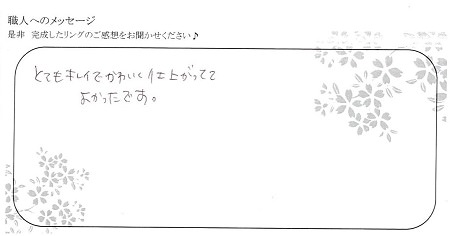 職人へのメッセージ
是非 完成したリングのご感想をお聞かせください♪
とてもキレイでかわいく仕上がってて
よかったです。